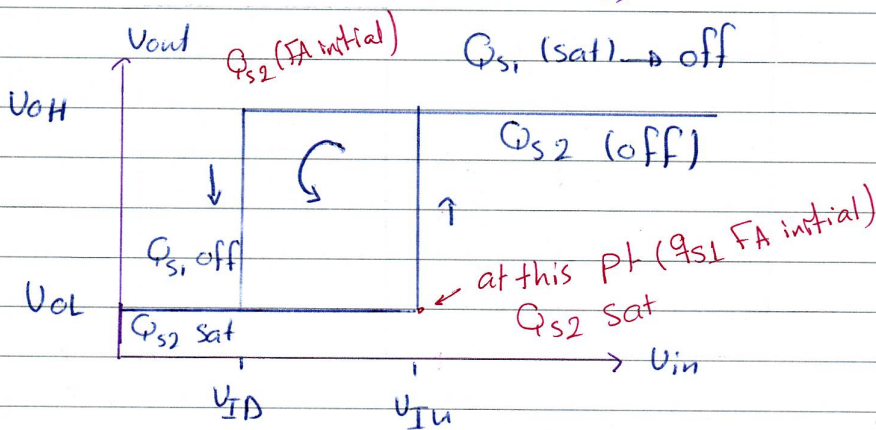 Vout
Qs2 (FA initial)
Qs1 (sat) → off
VOH
Qs2 (off)
↓
↑
Qs1 off
at this pt (qs1 FA initial)
Qs2 sat
VOL
Qs2 sat
Vin
VID
VIU